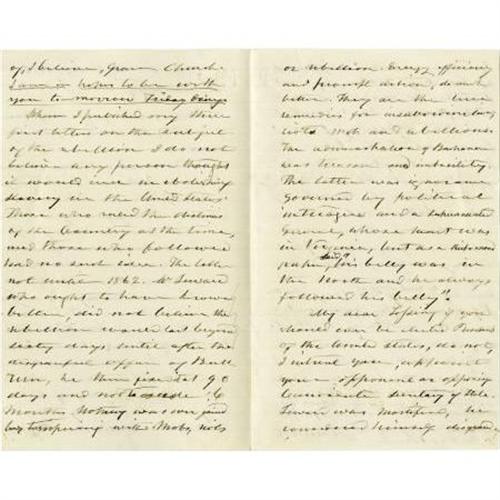 of, I believe, Grace Church
I am in hopes to be with
you to-morrow Friday Evng
When I published my three
first letters on the subject
of the rebellion I do not
believe any person thought
it would end in abolishing
slavery in the United States
Those who ruled the destinies
of the Country at the time,
and those who followed
had no such idea. The latter
not until 1862. Mr Seward
who ought to have known
better, did not believe the
rebellion would last beyond
sixty days, until after the
disgraceful affair of Bull
Run, he then fixed at 90
days and not to exceed 6
Months. Nothing was ever gained
by temporising with Mobs, riots
or rebellion. Energy efficiency
and prompt action, do much
better. They are the true
remedies for insubordination
riots Mob and rebellions.
The administration of Buchanan
was treason and imbecility.
The latter was ignorance
governed by political
intrigue and a superannuated
General, whose heart was
in Virginia, but as a Richmond
paper said, "his belly was in
the North and he always
followed his belly".
My dear if you
should ever be elected President
of the United States, do not
I intreat you, appoint
your opponent or opposing
Candidate Secretary of State.
Seward was mortified, he
considered himself disgraced